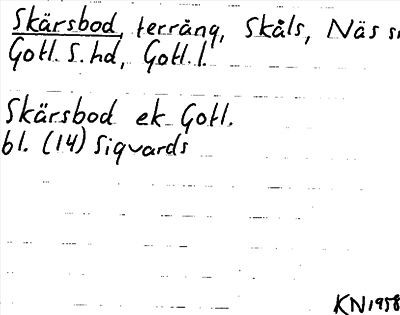 Skärsbod, terräng, Skåls, Näs s
Gotl. S. hd, Gotl. l.
Skärsbod ek Gotl.
bl. (14) Sigvards
KN 1958